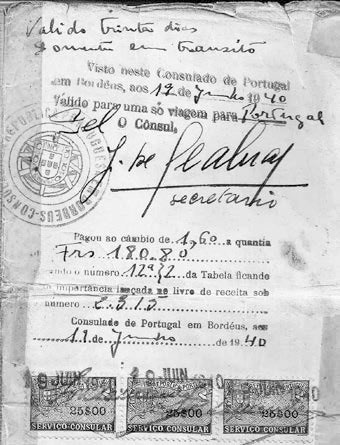 Valido trinta dias
somente em transito
Visto neste Consulado de Portugal
em Bordéus, aos 12 de Junho 1940
Válido para uma só viagem para Portugal
Pel O Cônsul,
J. de
secretario
Pagou ao câmbio de 1,60 a quantia
Frs 180.80
o numero da Tabela ficando
importância lançada no livro de receita sob
numero
Consulado de Portugal em Bordéus, aos
de Junho de 1940
JUN 1940
25$00 25$00 25$00
SERVIÇO CONSULAR SERVIÇO CONSULAR SERVIÇO CONSULAR